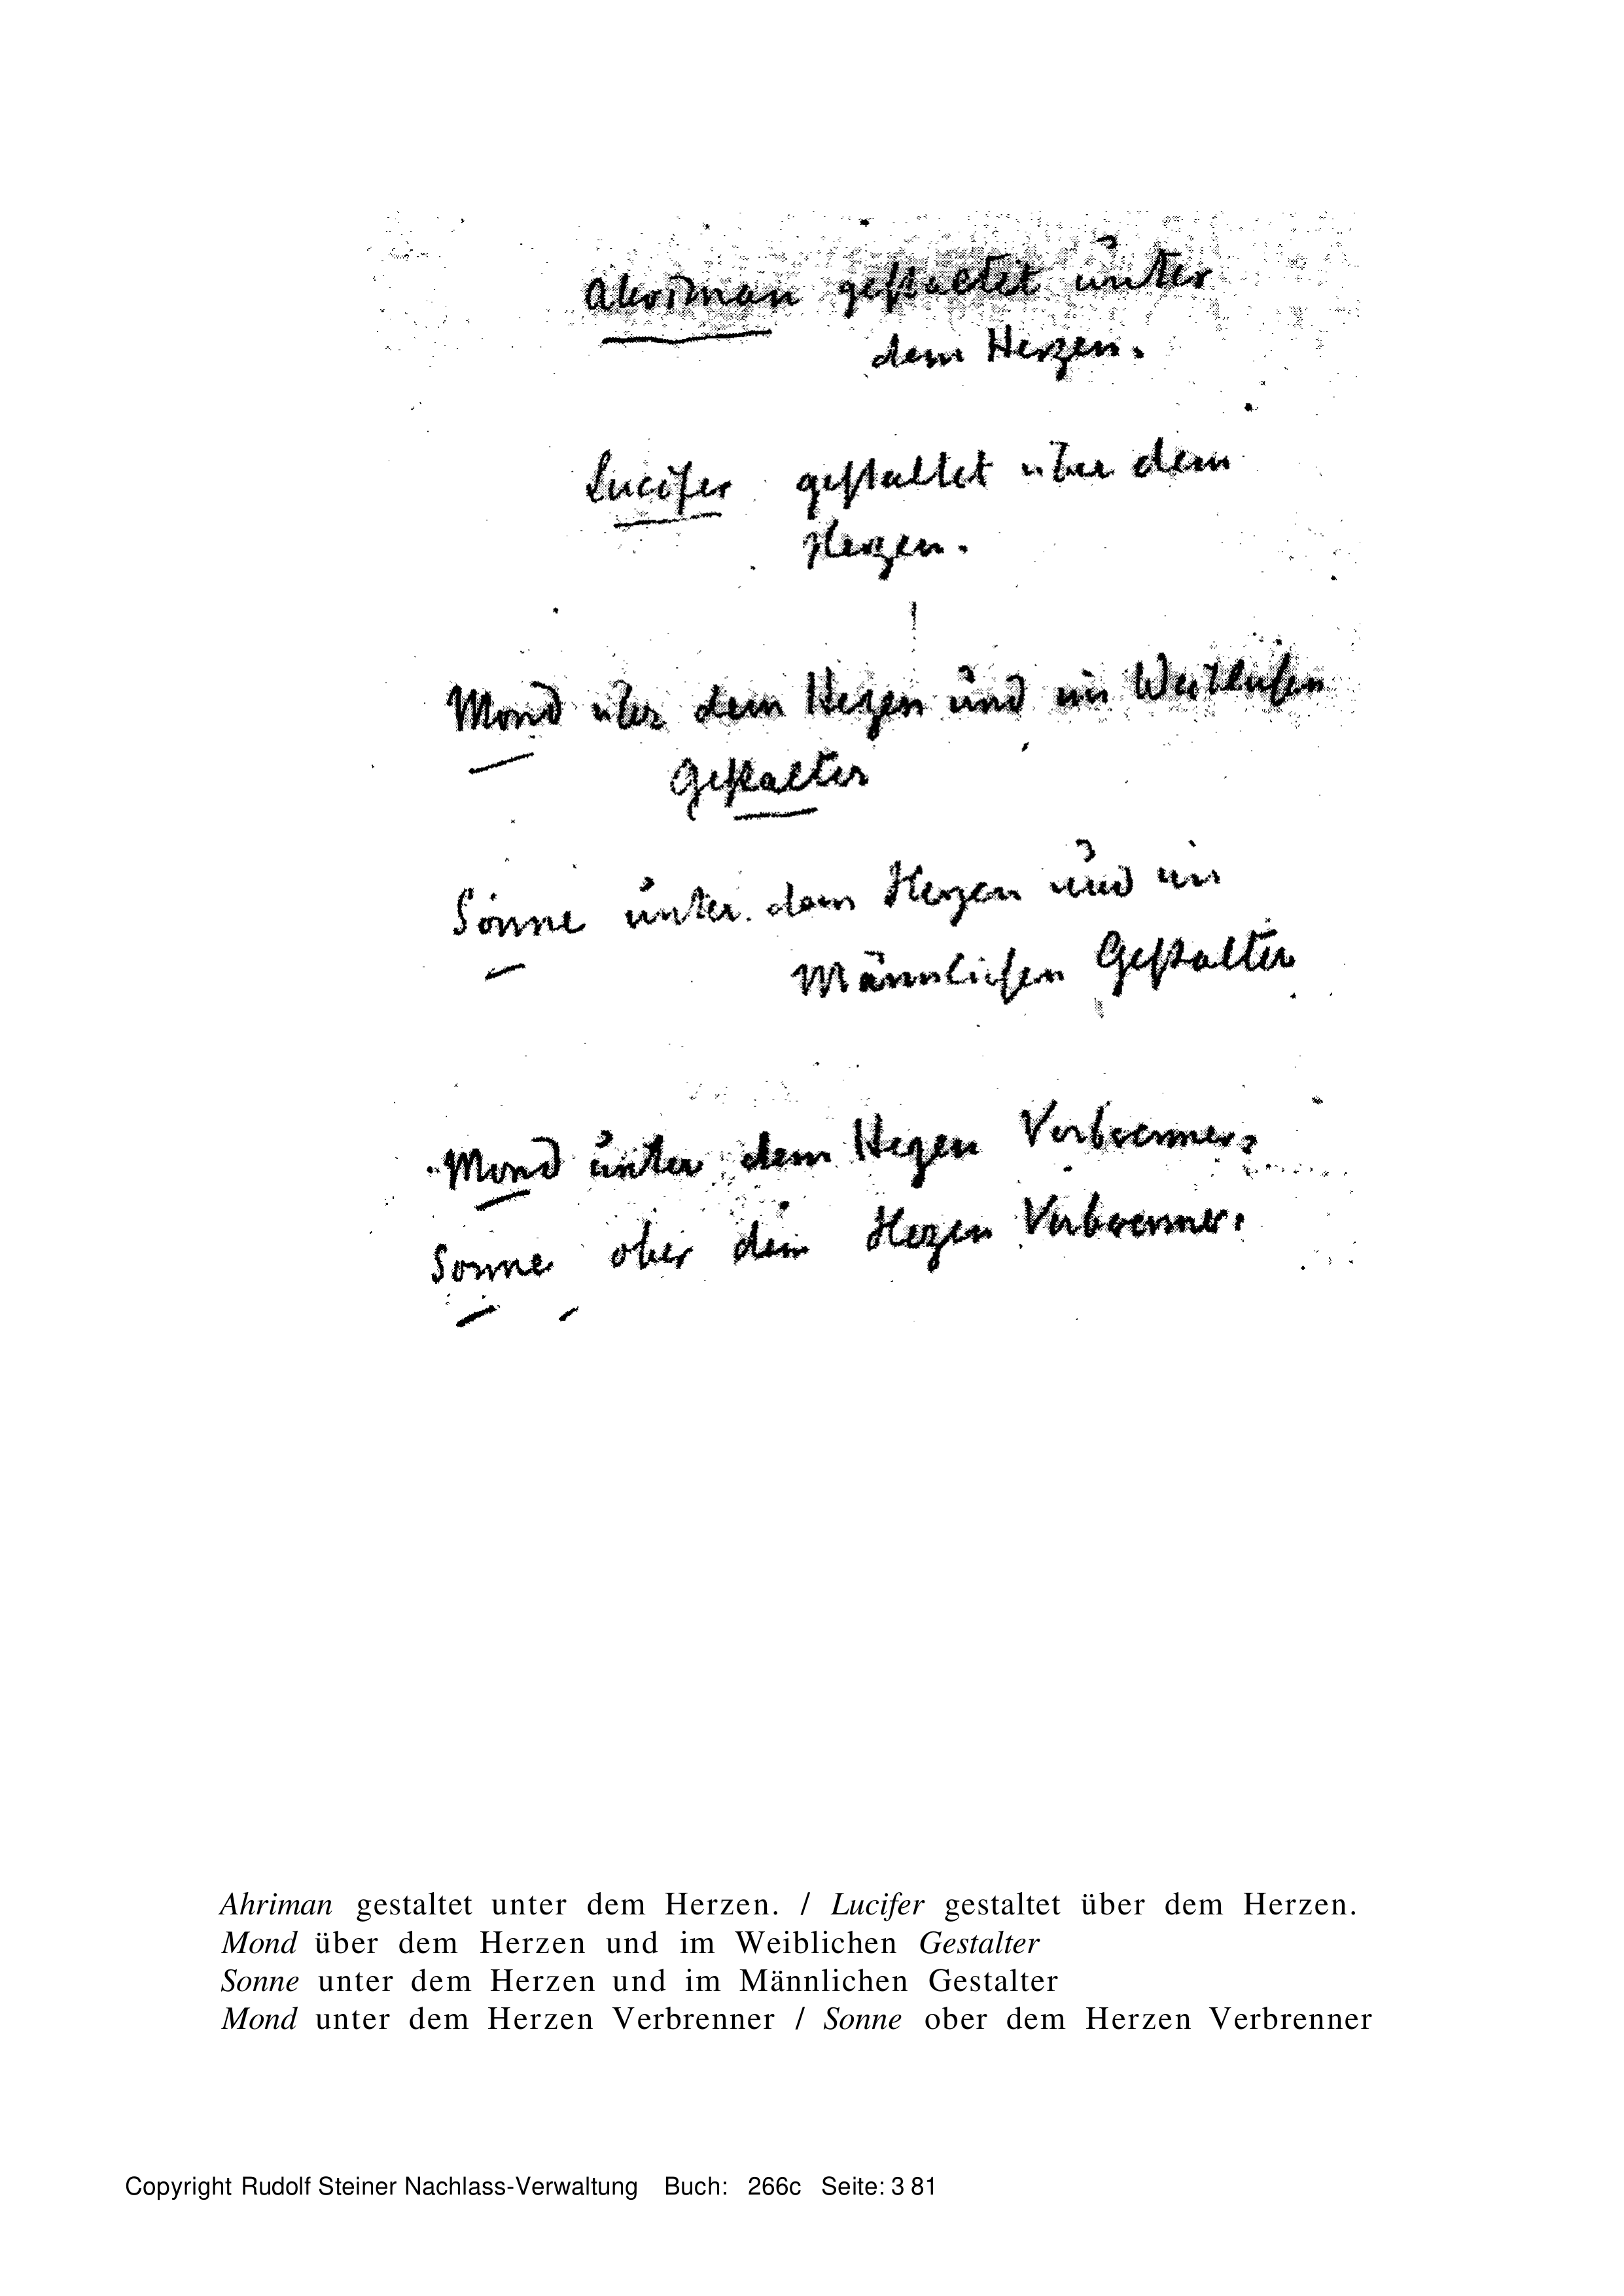 Ahriman gestaltet unter
dem Herzen.
Lucifer gestaltet über dem
Herzen.
Mond über dem Herzen und im Weiblichen
Gestalter
Sonne unter dem Herzen und im
Männlichen Gestalter
Mond unter dem Herzen Verbrenner,
Sonne ober dem Herzen Verbrenner.
Ahriman gestaltet unter dem Herzen. / Lucifer gestaltet über dem Herzen.
Mond über dem Herzen und im Weiblichen Gestalter
Sonne unter dem Herzen und im Männlichen Gestalter
Mond unter dem Herzen Verbrenner / Sonne ober dem Herzen Verbrenner
Copyright Rudolf Steiner Nachlass-Verwaltung Buch: 266c Seite: 3 81